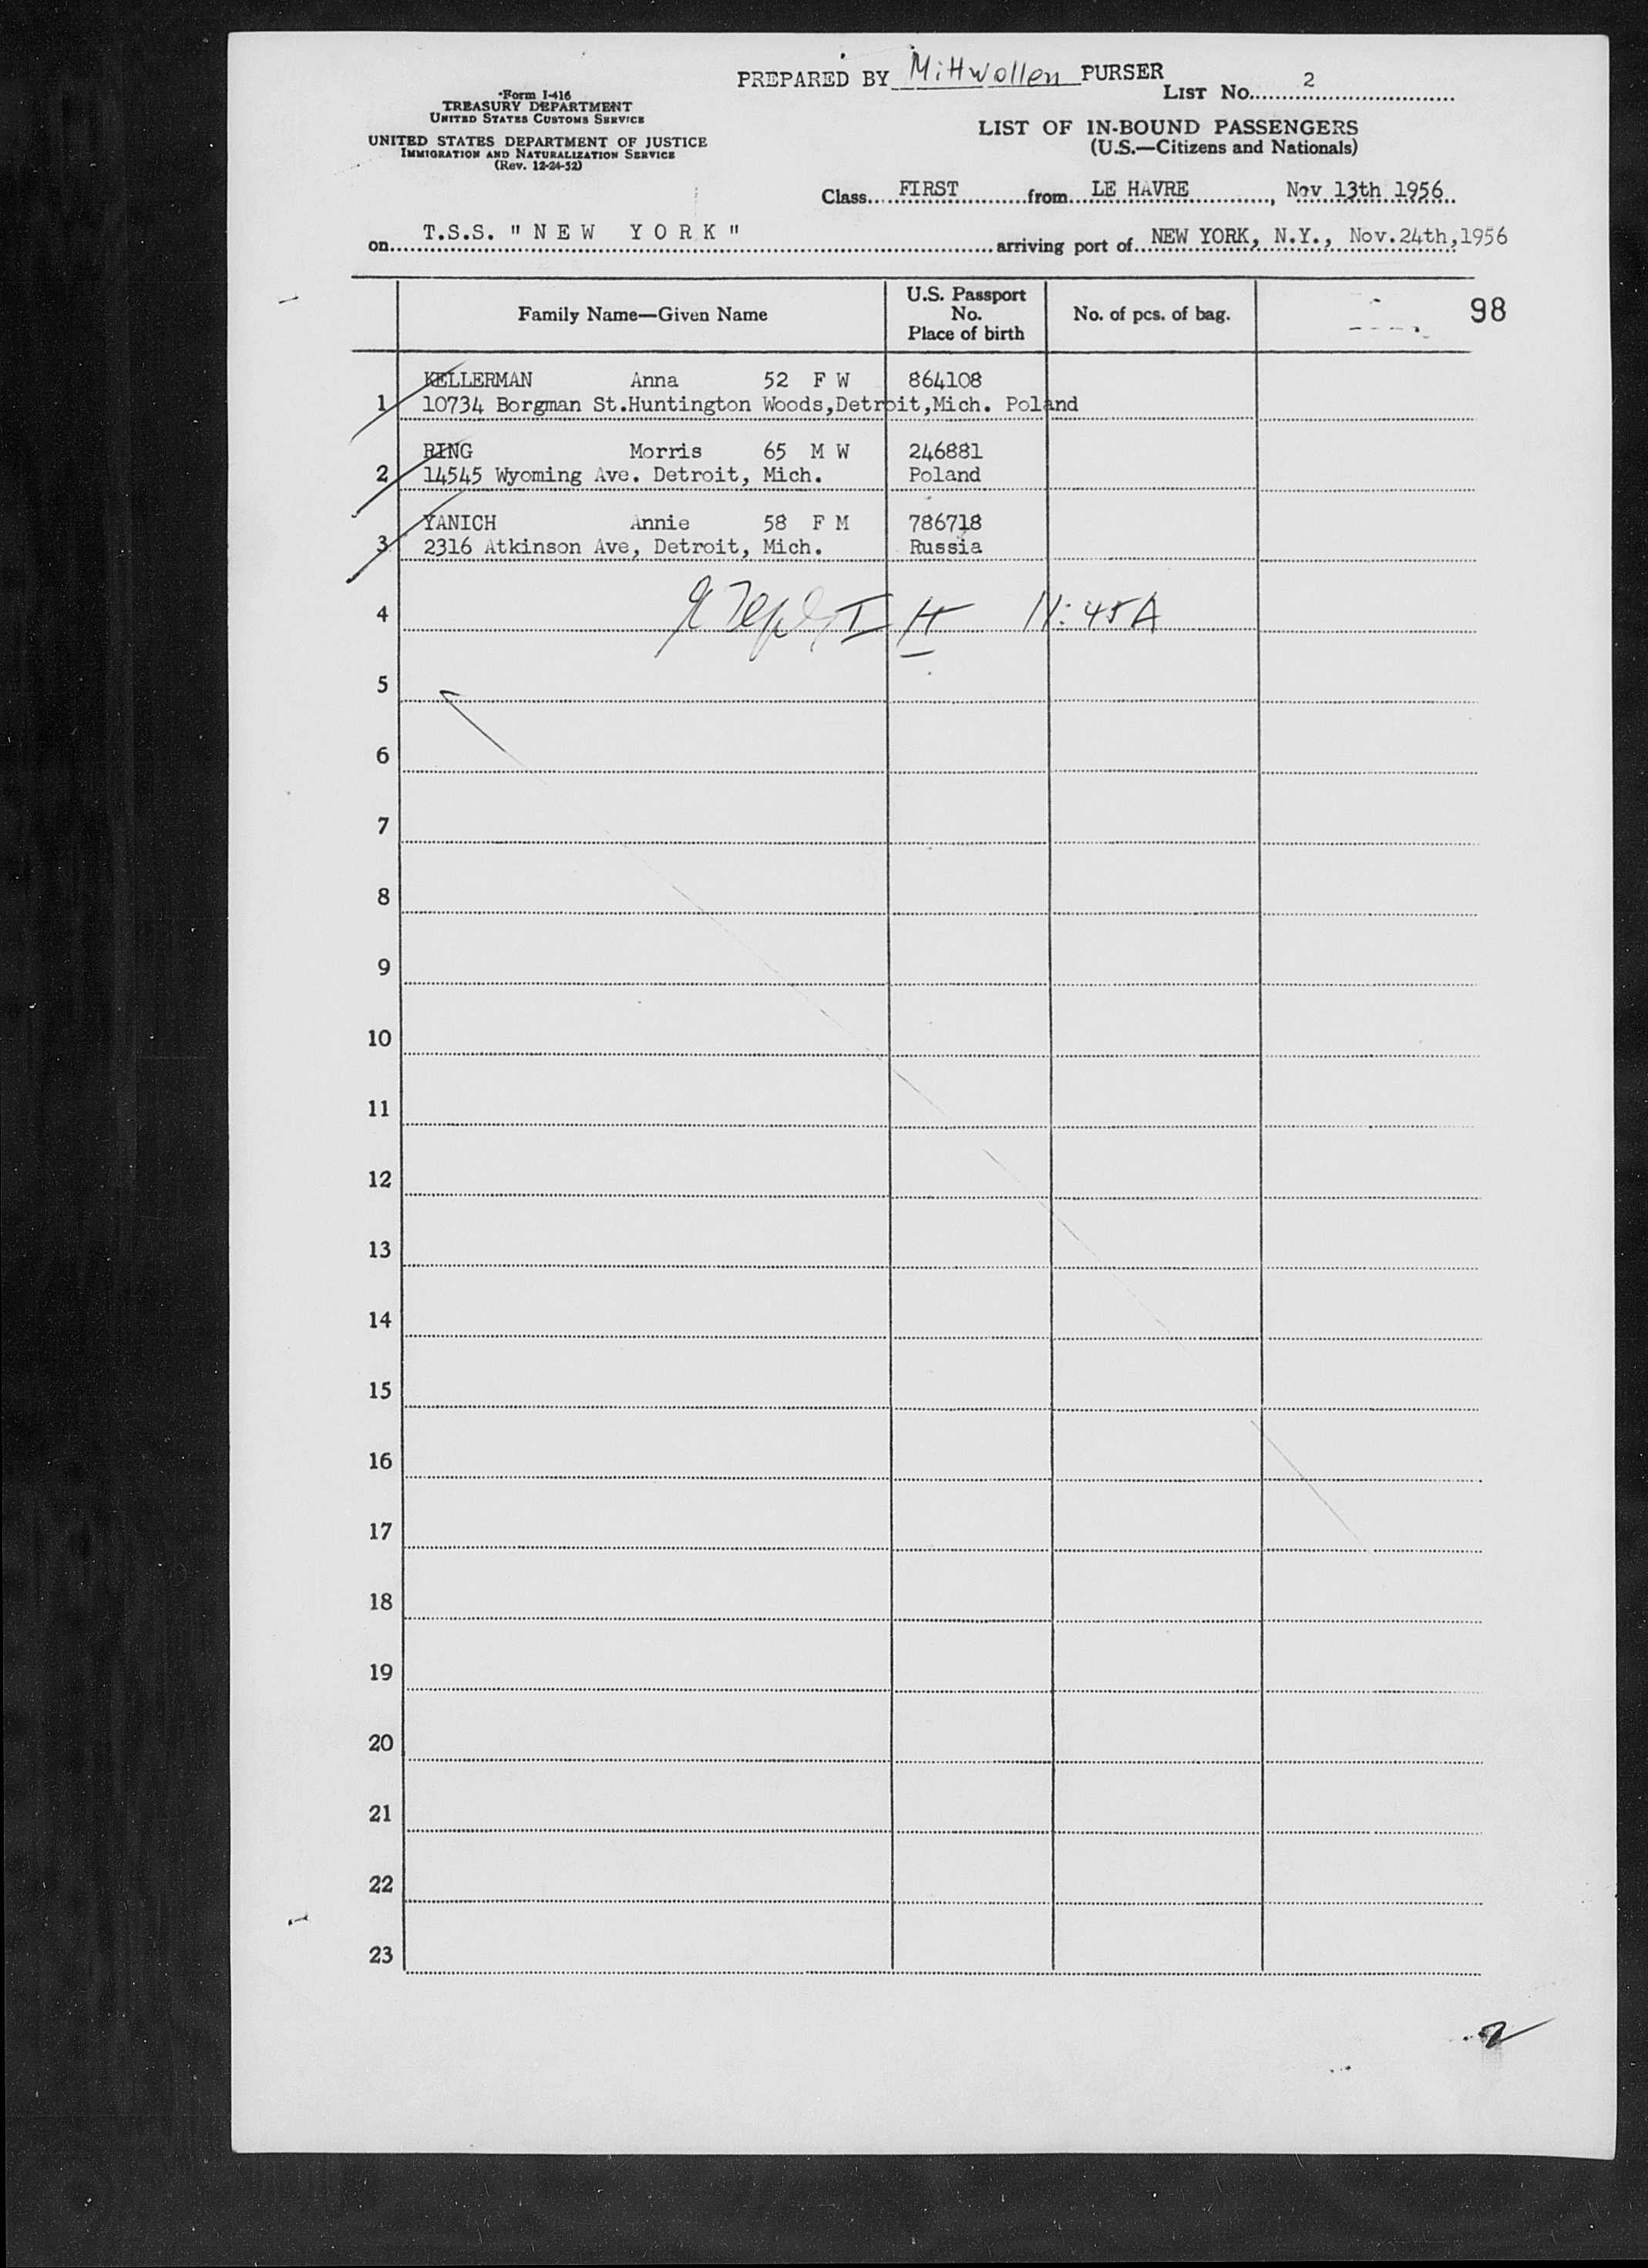 PREPARED BY Mittwollen PURSER
Form I-416
TREASURY DEPARTMENT
UNITED STATES CUSTOMS SERVICE
UNITED STATES DEPARTMENT OF JUSTICE
IMMIGRATION AND NATURALIZATION SERVICE
(Rev. 12-24-52)
LIST No. 2
LIST OF IN-BOUND PASSENGERS
(U.S.—Citizens and Nationals)
Class FIRST from LE HAVRE, Nov 13th 1956
on T.S.S. "NEW YORK" arriving port of NEW YORK, N.Y., Nov.24th,1956
Family Name—Given Name
U.S. Passport
No.
Place of birth
No. of pcs. of bag.
98
KELLERMAN Anna 52 F W 864108
1 10734 Borgman St.Huntington Woods,Detroit,Mich. Poland
RING Morris 65 M W 246881
2 14545 Wyoming Ave. Detroit, Mich. Poland
YANICH Annie 58 F M 786718
3 2316 Atkinson Ave, Detroit, Mich. Russia
4 11:45A
5
6
7
8
9
10
11
12
13
14
15
16
17
18
19
20
21
22
23
2